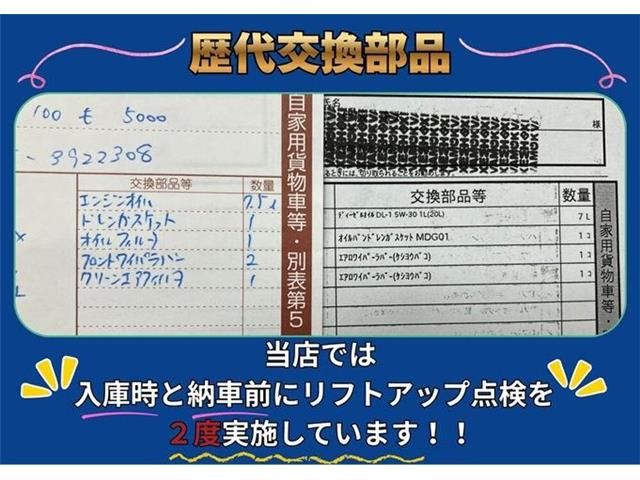 歴代交換部品
100 も 5000
-3922308
交換部品等 数量
エンジンオイル 7.5ℓ
ドレンガスケット 1
オイルフィルター 1
フロントワイパーラバー 2
クリーンエアフィルタ 1
自家用貨物車等・別表第5
氏名
様
交換部品等 数量
ディーゼルオイル DL-1 5W-30 1L(20L) 7L
オイルパンドレンガスケット MDG01 1コ
エアロワイパーラバー(ケショウバコ) 1コ
エアロワイパーラバー(ケショウバコ) 1コ
自家用貨物車等・
当店では
入庫時と納車前にリフトアップ点検を
２度実施しています！！